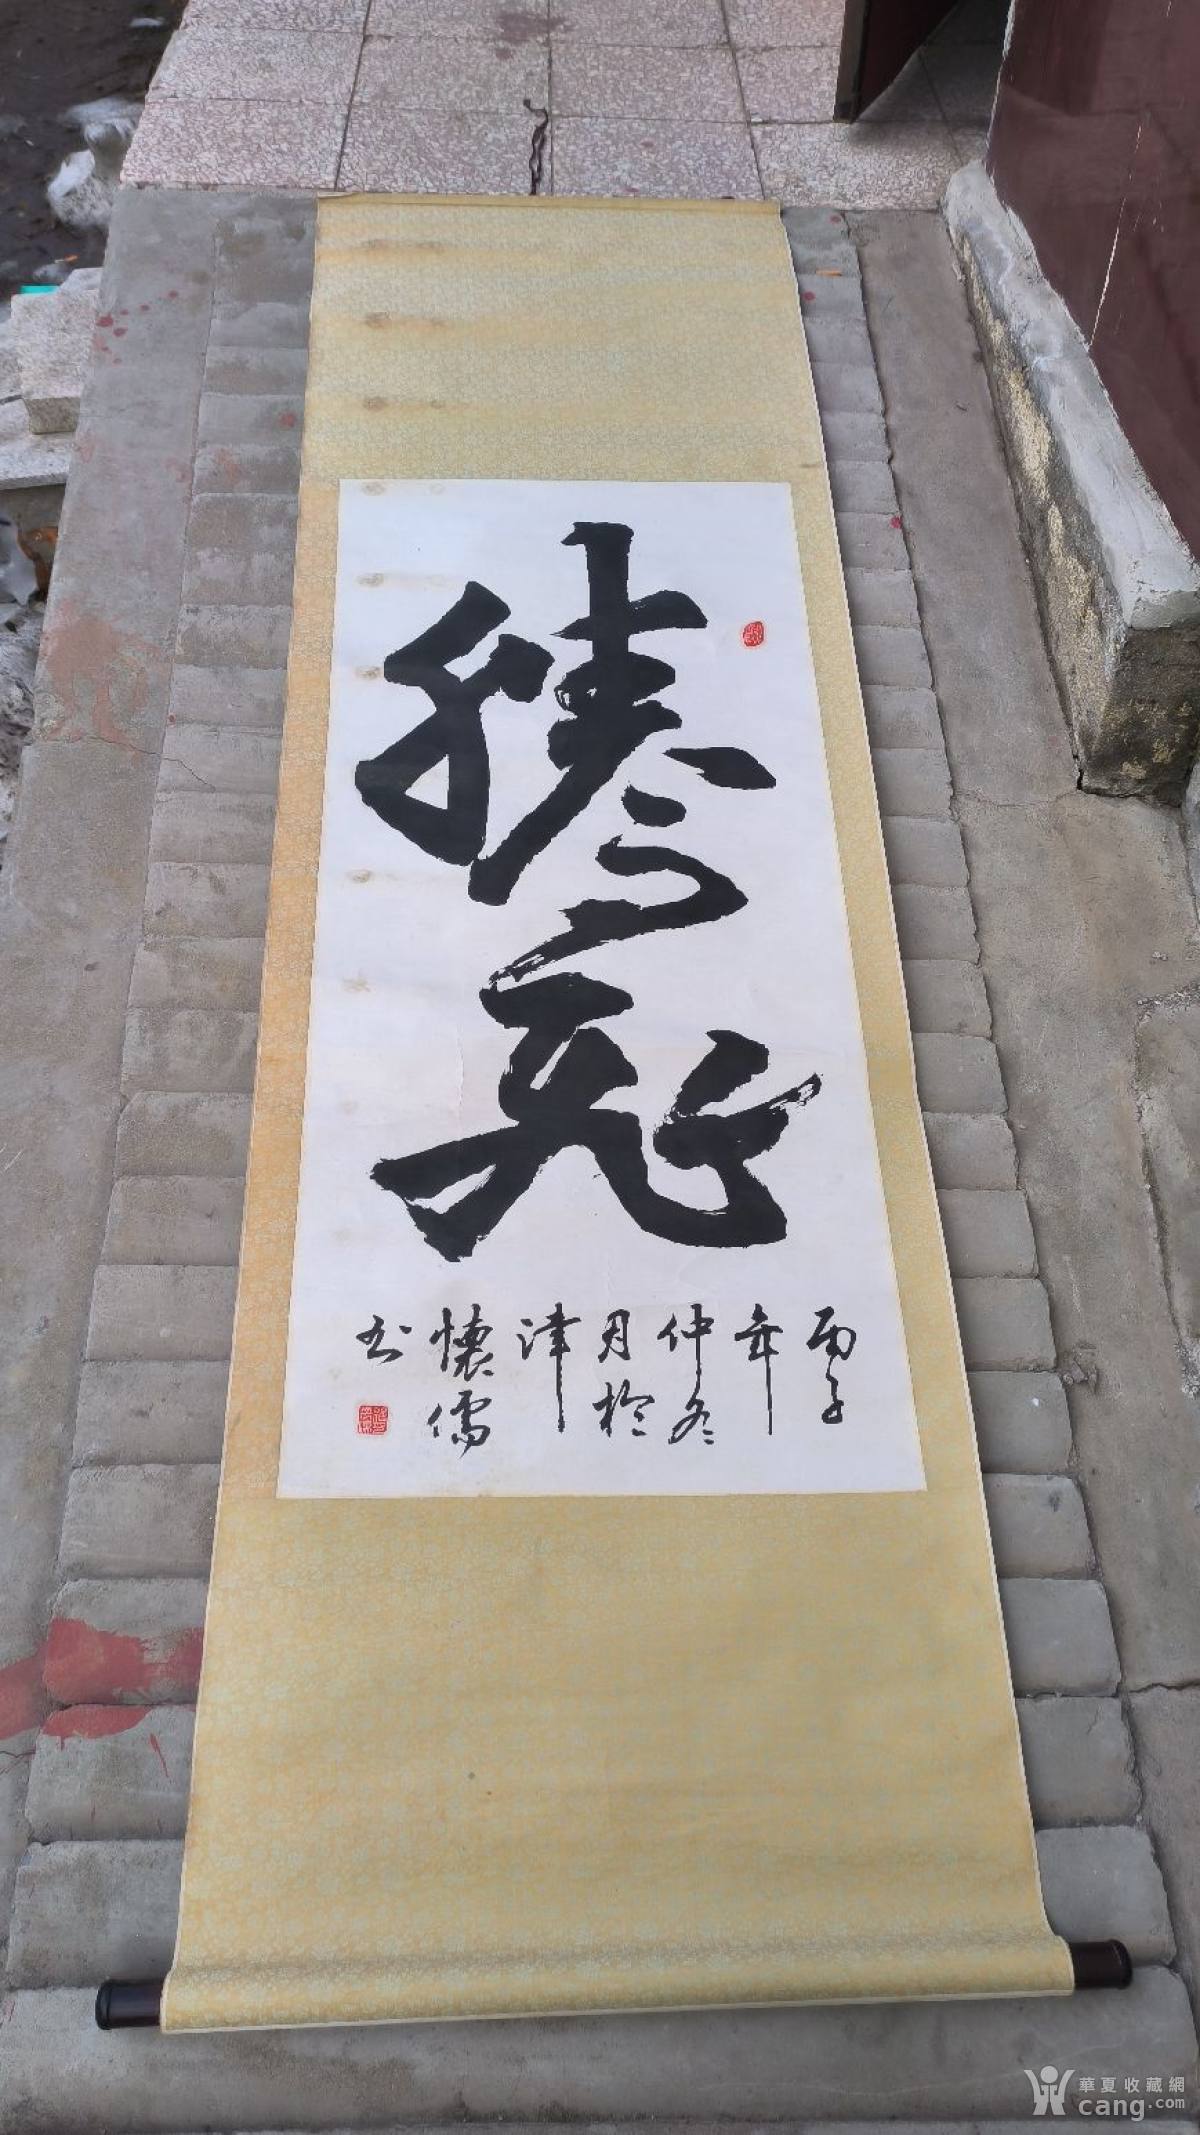 腾飞
丙子
年
仲冬
月於
津
懷儒
书
華夏收藏網
cang.com